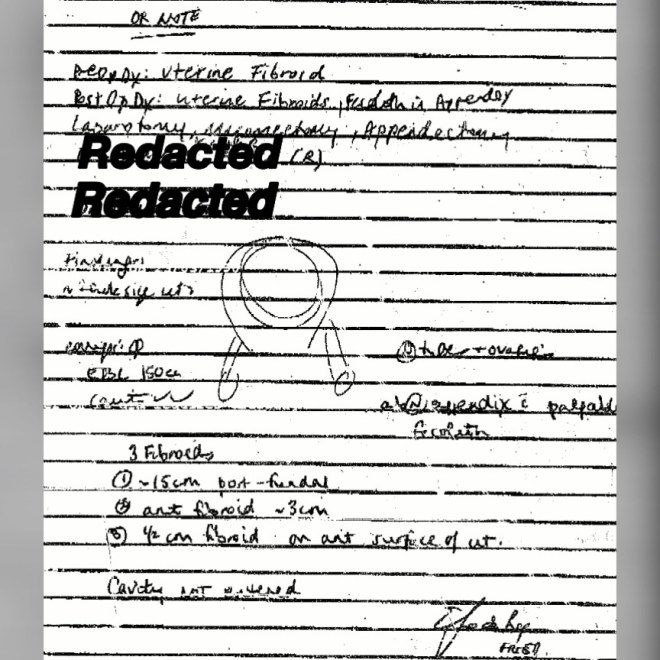 OR NOTE
PreOp Dx: Uterine Fibroid
Post Op Dx: Uterine Fibroids, Fecolith in Appendix
Laparotomy, Myomectomy, Appendectomy
Redacted (R)
Redacted
Findings:
size ut
EBL 150cc
tube + ovaries
appendix c palpable
fecolith
3 Fibroids
① ~15cm post-fundal
② ant fibroid ~3cm
③ 1/2 cm fibroid on ant surface of ut.
Cavity not entered